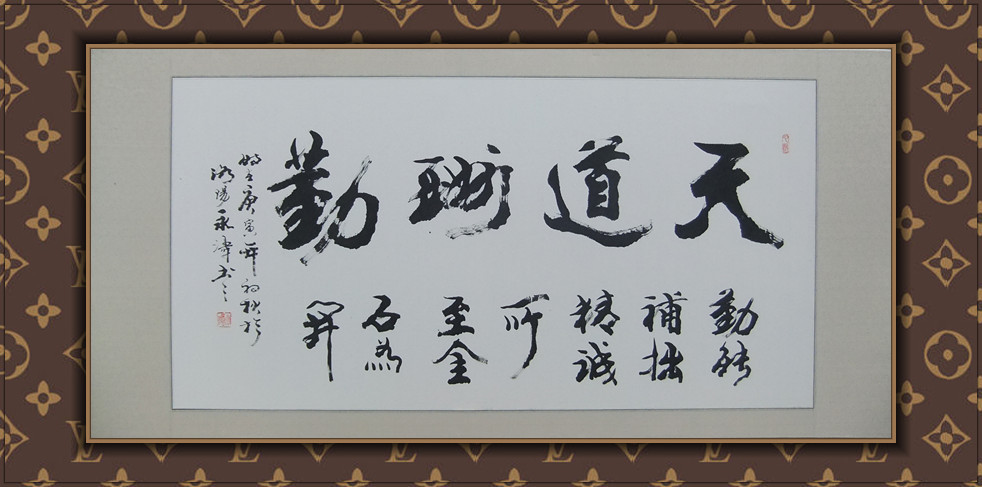 天道酬勤
勤能
補拙
精誠
所
至金
石為
開
時在庚寅年初秋於
洛陽永書之